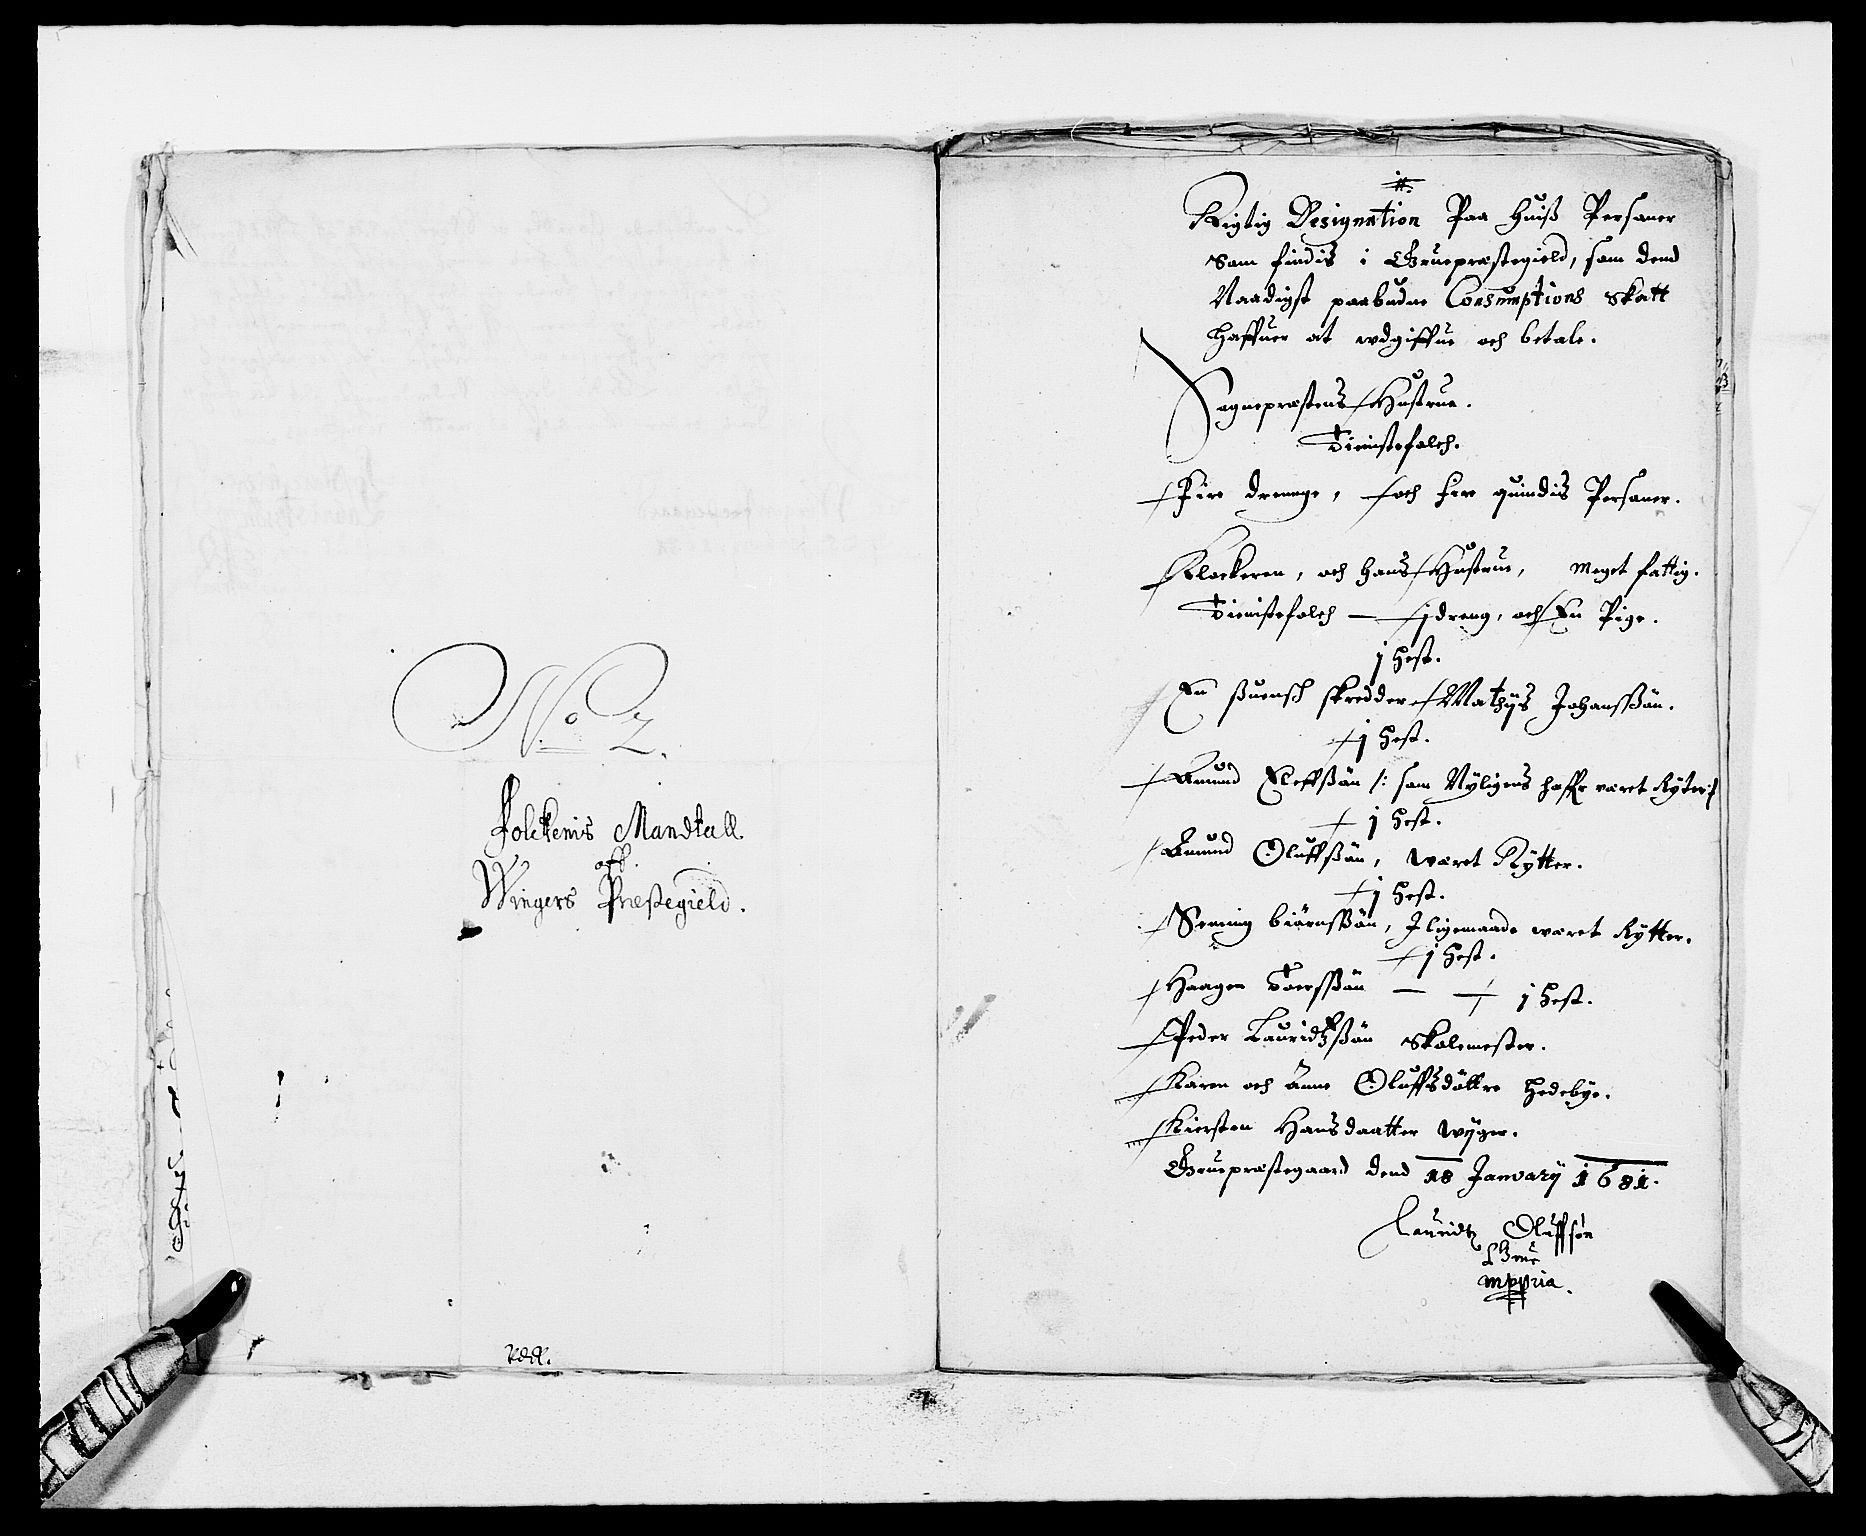 No 2.
Folckenis Mandtall
aff
Wingers Præstegield.
Rigtig Designation Paa huiß Persaner
Som findis i Gruepræstegield, som dend
Naadigst paabudne Consumptions Skatt
haffuer at wdgiffue och betale.
Sognepræstens Hustrue.
Tienistefolch.
Fire drenge, och fire quindis Persaner.
Klockeren, och hans Hustrue, meget fattig.
Tienistefolch — 1 dreng, och En Pige.
1 Hest.
En suensch skredder Mathijs Johanssøn.
1 Hest.
Amund Eleffsøn /: som Nyligens haffr været Rytter :/
1 Hest.
Amund Oluffsøn, været Rytter.
1 Hest.
Sening biørnssøn, Iligemaade været Rytter.
1 Hest.
Haagen Toerssøn — 1 Hest.
Peder Lauridtzsøn Skolemester.
Karen och Anne Oluffsdøttre Hedebye.
Kiersten Hansdaatter Wijger.
Gruepræstegaard dend 18 January 1681.
Lauridtz Oluffsøn
Grue
mppria.